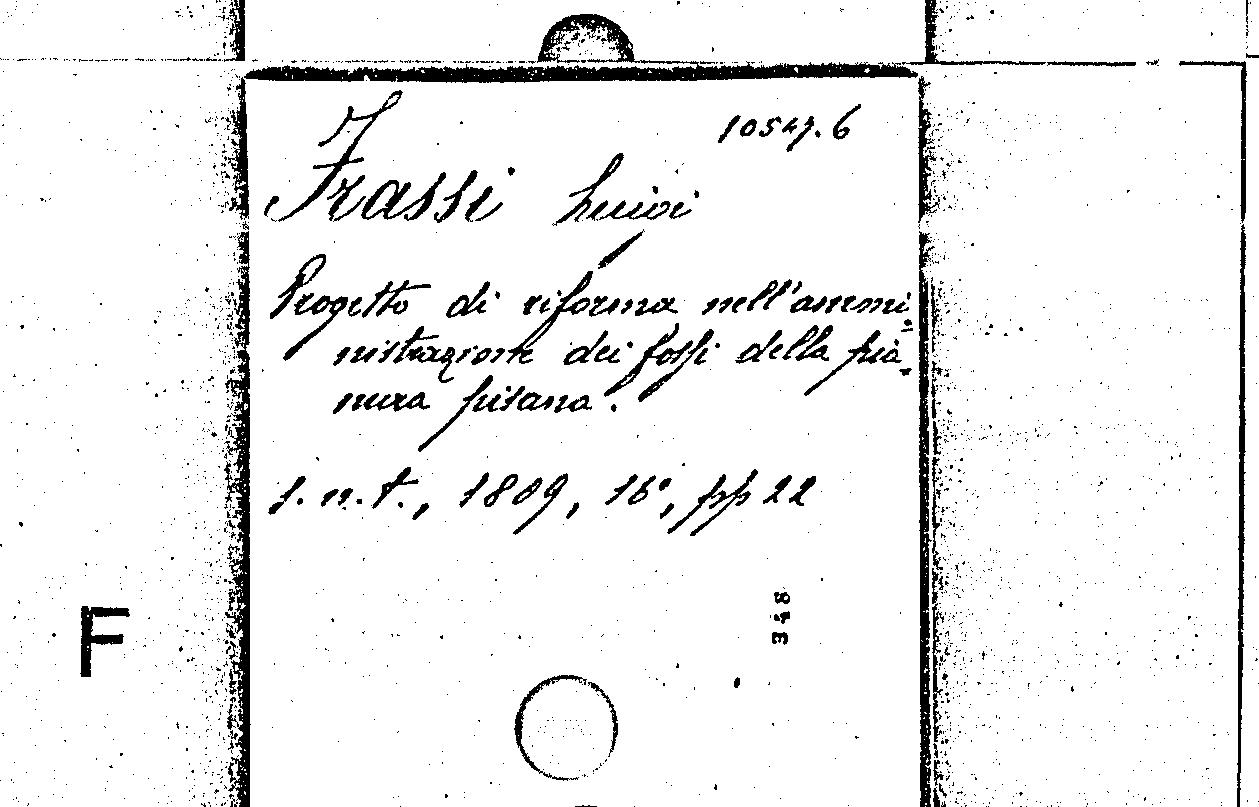 10547.6
Frassi Luigi
Progetto di riforma nell'ammi-
nistrazione dei fossi della pia-
nura pisana.
s. n. t., 1809, 16°, pp 22
348
F